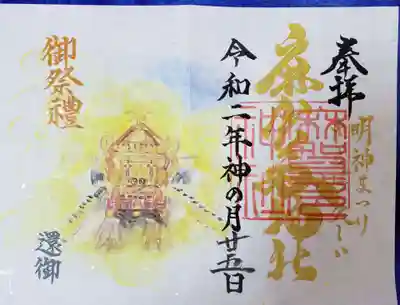 奉拝
明神まつり
麻賀多神社
令和二年神の月廿五日
御祭禮
還御